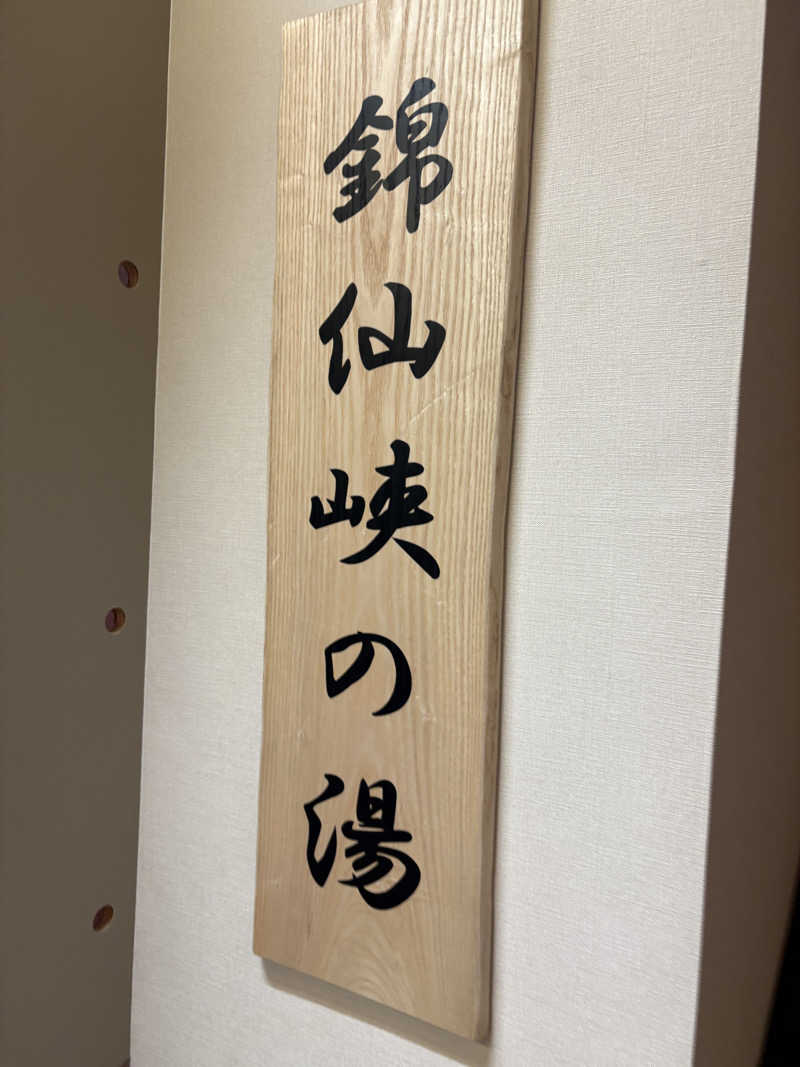 錦仙峡の湯